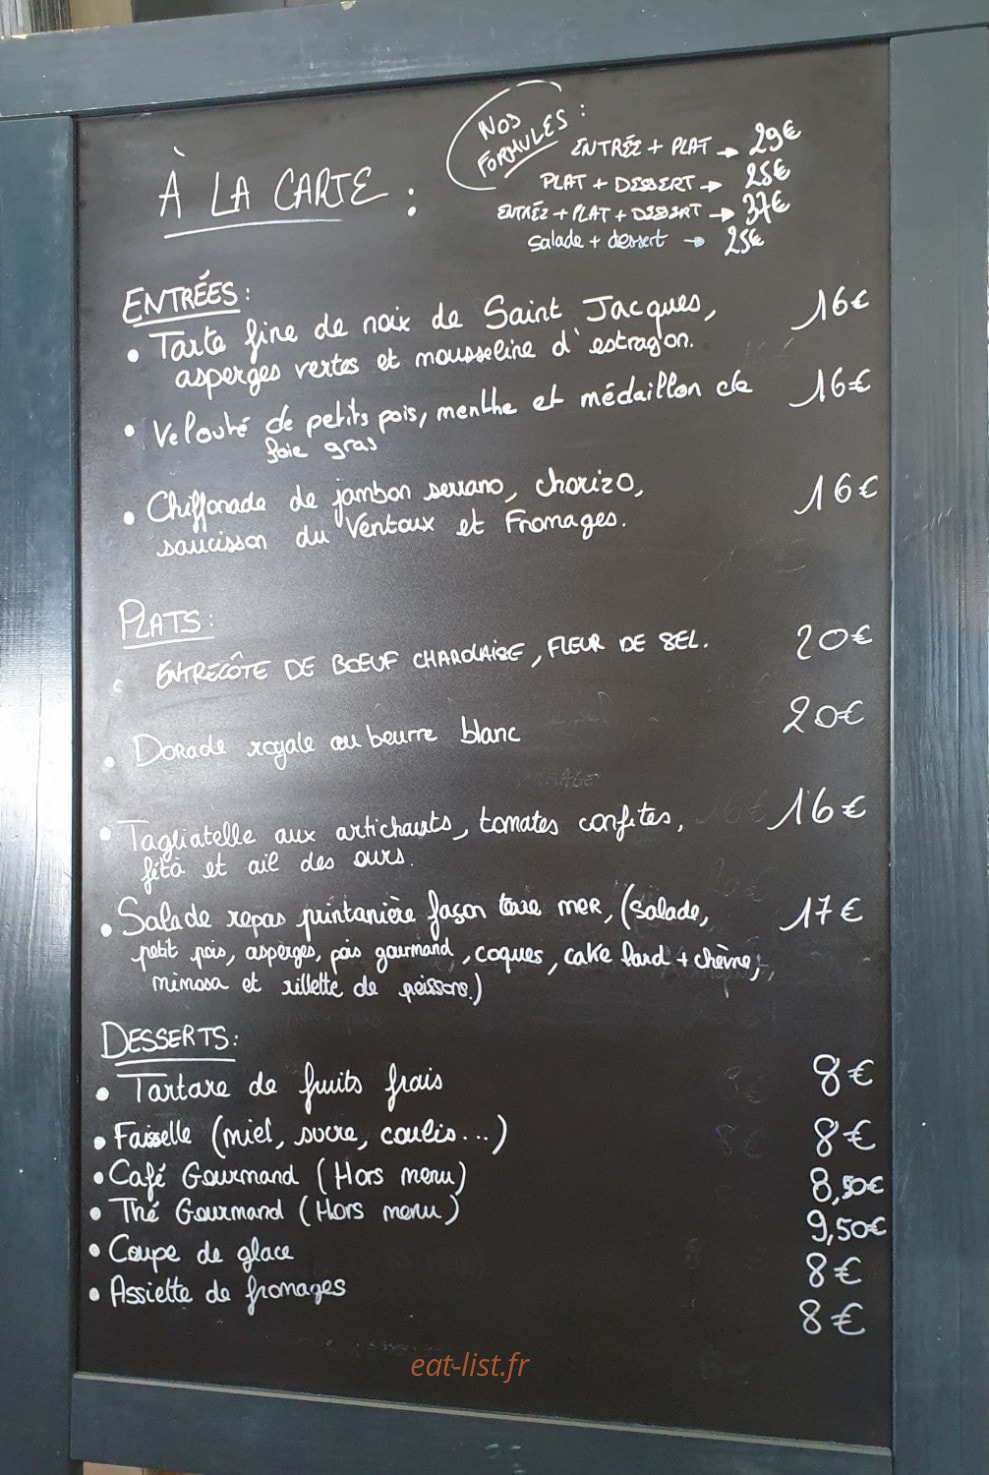 À LA CARTE :
NOS
FORMULES :
ENTRÉE + PLAT → 29€
PLAT + DESSERT → 25€
ENTRÉE + PLAT + DESSERT → 37€
Salade + dessert → 25€
ENTRÉES :
• Tarte fine de noix de Saint Jacques, 16€
asperges vertes et mousseline d'estragon.
• Velouté de petits pois, menthe et médaillon de 16€
foie gras
• Chiffonade de jambon serrano, chorizo, 16€
saucisson du Ventoux et Fromages.
PLATS :
ENTRECÔTE DE BOEUF CHAROLAISE, FLEUR DE SEL. 20€
• Dorade royale au beurre blanc 20€
• Tagliatelle aux artichauts, tomates confites, 16€
féta et ail des ours.
• Salade repas printanière façon terre mer, (Salade, 17€
petit pois, asperges, pois gourmand, coques, cake lard + chèvre,
mimosa et rillette de poissons.)
DESSERTS :
• Tartare de fruits frais 8€
• Faisselle (miel, sucre, coulis...) 8€
• Café Gourmand (Hors menu) 8,50€
• Thé Gourmand (Hors menu) 9,50€
• Coupe de glace 8€
• Assiette de fromages 8€
eat-list.fr